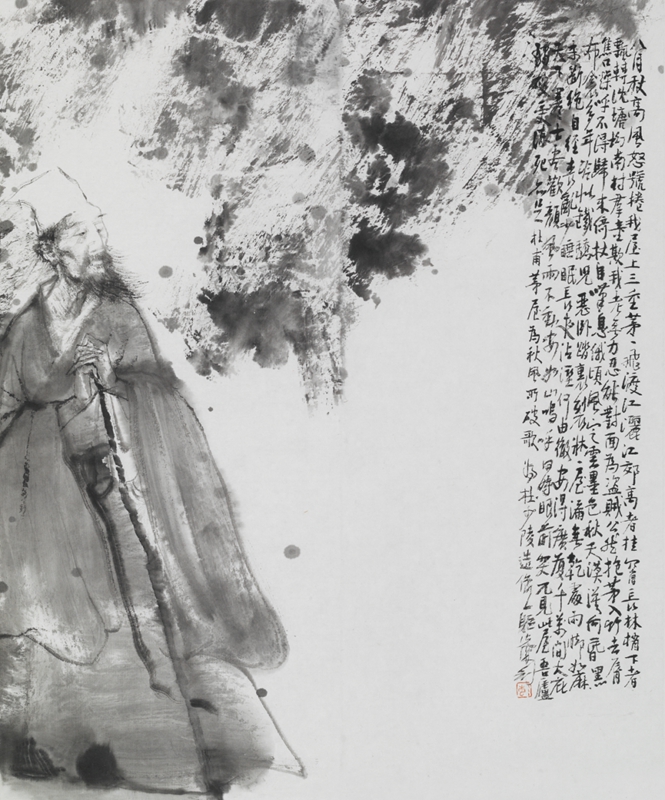 八月秋高風怒號捲我屋上三重茅、飛渡江灑江郊高者挂罥長林梢下者
飄轉沈塘坳南村群童欺我老無力忍能對面為盜賊公然抱茅入竹去脣
焦口燥呼不得歸來倚杖自嘆息俄頃風定雲墨色秋天漠漠向昏黑
布衾多年冷似鐵驕兒惡卧踏裏裂床、屋漏無乾處雨脚如麻
未斷絕自經喪亂少睡眠長夜沾濕何由徹安得廣厦千萬間大庇
天下寒士盡歡顏風雨不動安如山嗚呼何時眼前突兀見此屋吾廬
獨破受凍死亦足 杜甫茅屋為秋風所破歌 為杜少陵造像